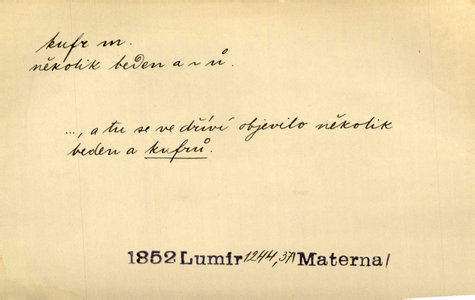 kufr m.
několik beden a ~ ů.
..., a tu se ve dříví objevilo několik
beden a kufrů.
1852 Lumír 1244,37 Materna/